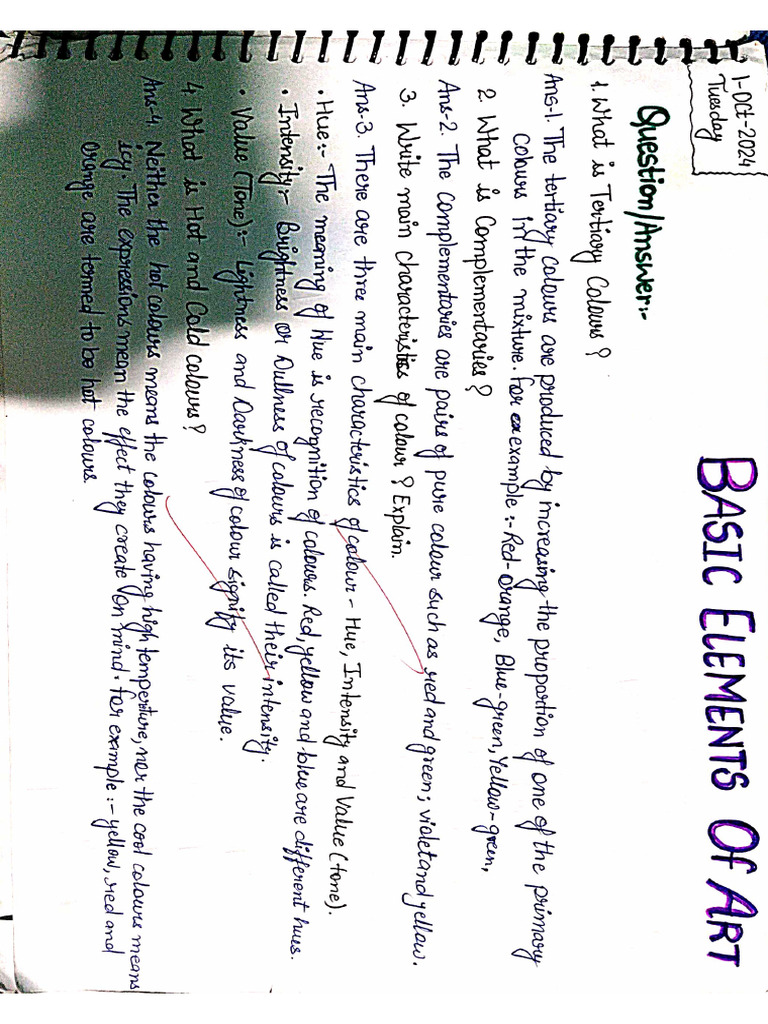 1-Oct-2024
Tuesday
BASIC ELEMENTS Of ART
Question/Answer:-
1. What is Tertiary Colours?
Ans-1. The tertiary colours are produced by increasing the proportion of one of the primary
colours in the mixture. For example:- Red-Orange, Blue-green, Yellow-green,
2. What is Complementaries?
Ans-2. The complementaries are pairs of pure colour such as red and green; violet and yellow.
3. Write main characteristics of colour? Explain.
Ans-3. There are three main characteristics of colour - Hue, Intensity and Value (tone).
• Hue:- The meaning of Hue is recognition of colours. Red, yellow and blue are different hues.
• Intensity:- Brightness or Dullness of colours is called their intensity.
• Value (Tone):- Lightness and Darkness of colour signity its value.
4. What is Hot and Cold colours?
Ans-4. Neither the hot colours means the colours having high temperature, nor the cool colours means
icy. The expressions mean the effect they create on mind. For example:- yellow, red and
orange are termed to be hot colours.